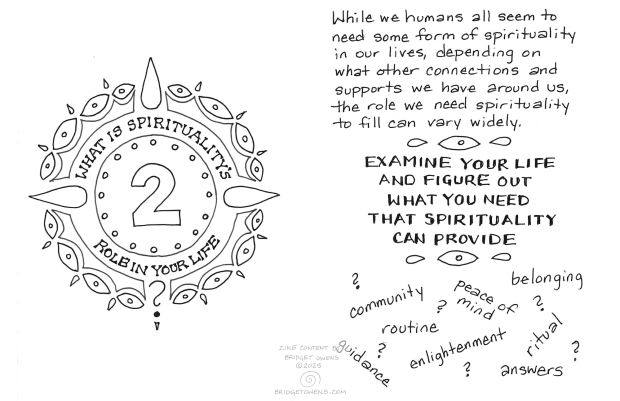 WHAT IS SPIRITUALITY'S
2
ROLE IN YOUR LIFE
?
While we humans all seem to
need some form of spirituality
in our lives, depending on
what other connections and
supports we have around us,
the role we need spirituality
to fill can vary widely.
EXAMINE YOUR LIFE
AND FIGURE OUT
WHAT YOU NEED
THAT SPIRITUALITY
CAN PROVIDE
?
belonging
community
?
peace of
mind
?
routine
guidance
?
enlightenment
?
ritual
?
answers
ZINE CONTENT BY
BRIDGET OWENS
©2025
BRIDGETOWENS.COM